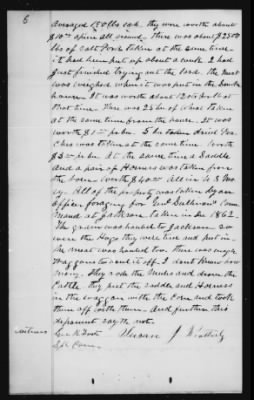 6
averaged 150 lbs each. they were worth about
$10.00 apiece all round. there was about 2500
lbs of salt Pork taken at the same time.
it had been put up about a week. I had
just finished trying out the lard. The meat
was weighed when it was put in the smoke
house. It was worth about 12½ per lb at
that time. There was 25 bu of wheat taken
at the same time from the house. It was
worth $1.00 pr bu. 5 bu dried Pea
ches was taken at the same time worth
$3.00 pr bu. At the same time a saddle
and a pair of Harness was taken from
the barn worth $40.00 All in
All of the property was taken by an
officer foraging for Genl Sullivans Com
mand at Jackson Tenn in Dec 1862.
The were hauled to Jackson so
were the Hogs they were live and put in.
the meat was hauled too. there was enough
waggons to haul it off. I dont know how
many. They rode the Mules and drove the
Cattle they put the saddle and Harness
in the waggon with the Corn and took
them off with them. And further this
deponent sayth not.
witnesses
J